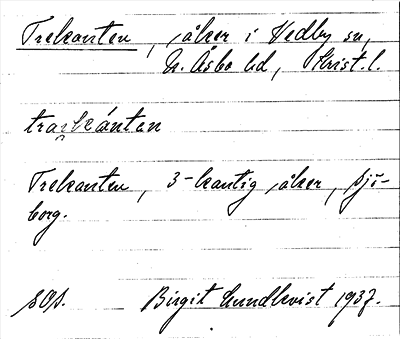 Trekanten, åker i Vedby sn,
N. Åsbo hd, Krist. l.
trækánten
Trekanten, 3-kantig åker, Sjö-
borg.
SOS. Birgit Lundkvist 1937.